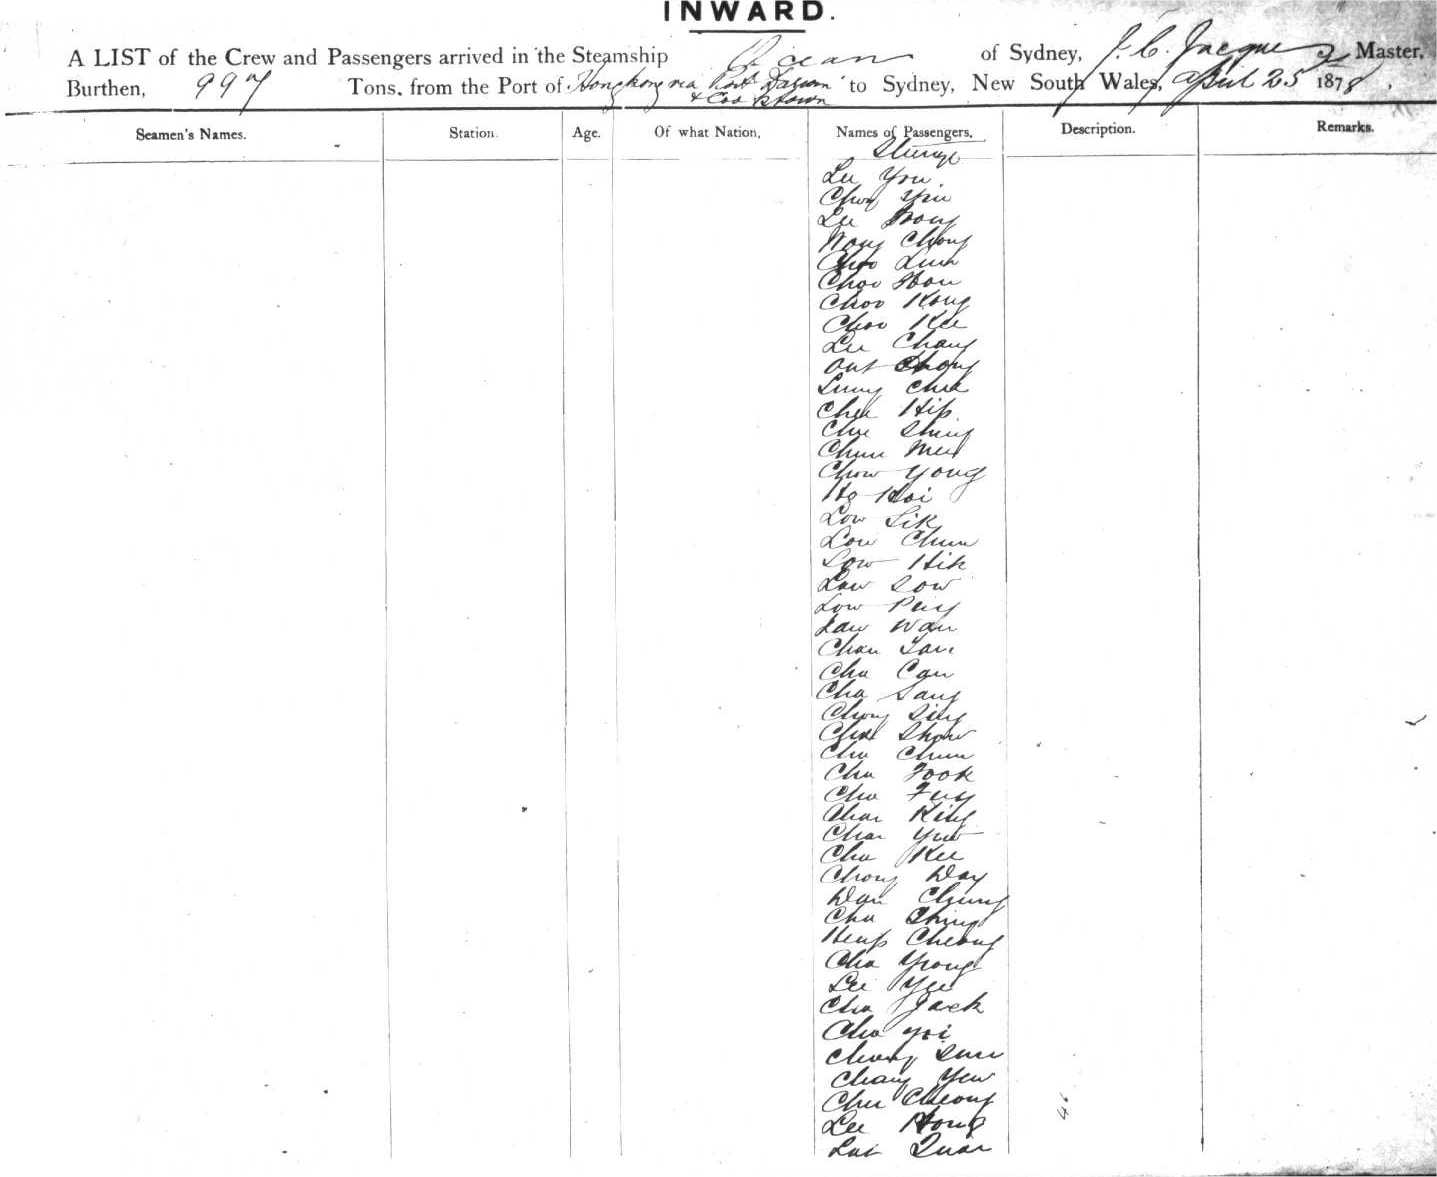 INWARD.
A LIST of the Crew and Passengers arrived in the Steamship Ocean of Sydney, J. C. Jacques Master,
Burthen, 997 Tons, from the Port of Hongkong via Port Darwin to Sydney, New South Wales, April 25 1878.
& Cooktown
Seamen's Names. Station. Age. Of what Nation. Names of Passengers. Description. Remarks.
Steerage
Lee You
Chong Yin
Lee Wong
Wong Chong
Choo Lum
Choo How
Choo Kong
Choo Kee
Lee Chang
Out Chong
Lung Chee
Chee Hip
Chee Shing
Chun Mee
Chow Yong
Ho Hoi
Low Sik
Low Chun
Low Hik
Law Sow
Low Puy
Law Wan
Chan Tan
Cha Can
Cha Sang
Chong Sing
Show
Cha Chun
Cha Fook
Cha Fuy
Char King
Char Yut
Cha Kee
Chong Way
Wan Chung
Cha Ching
Heap Cheong
Cha Yong
Lee Yee
Cha Jack
Cha Yoi
Chung Sun
Chang Yew
Chu Cheong
Lee Hong
Lut Quai
46